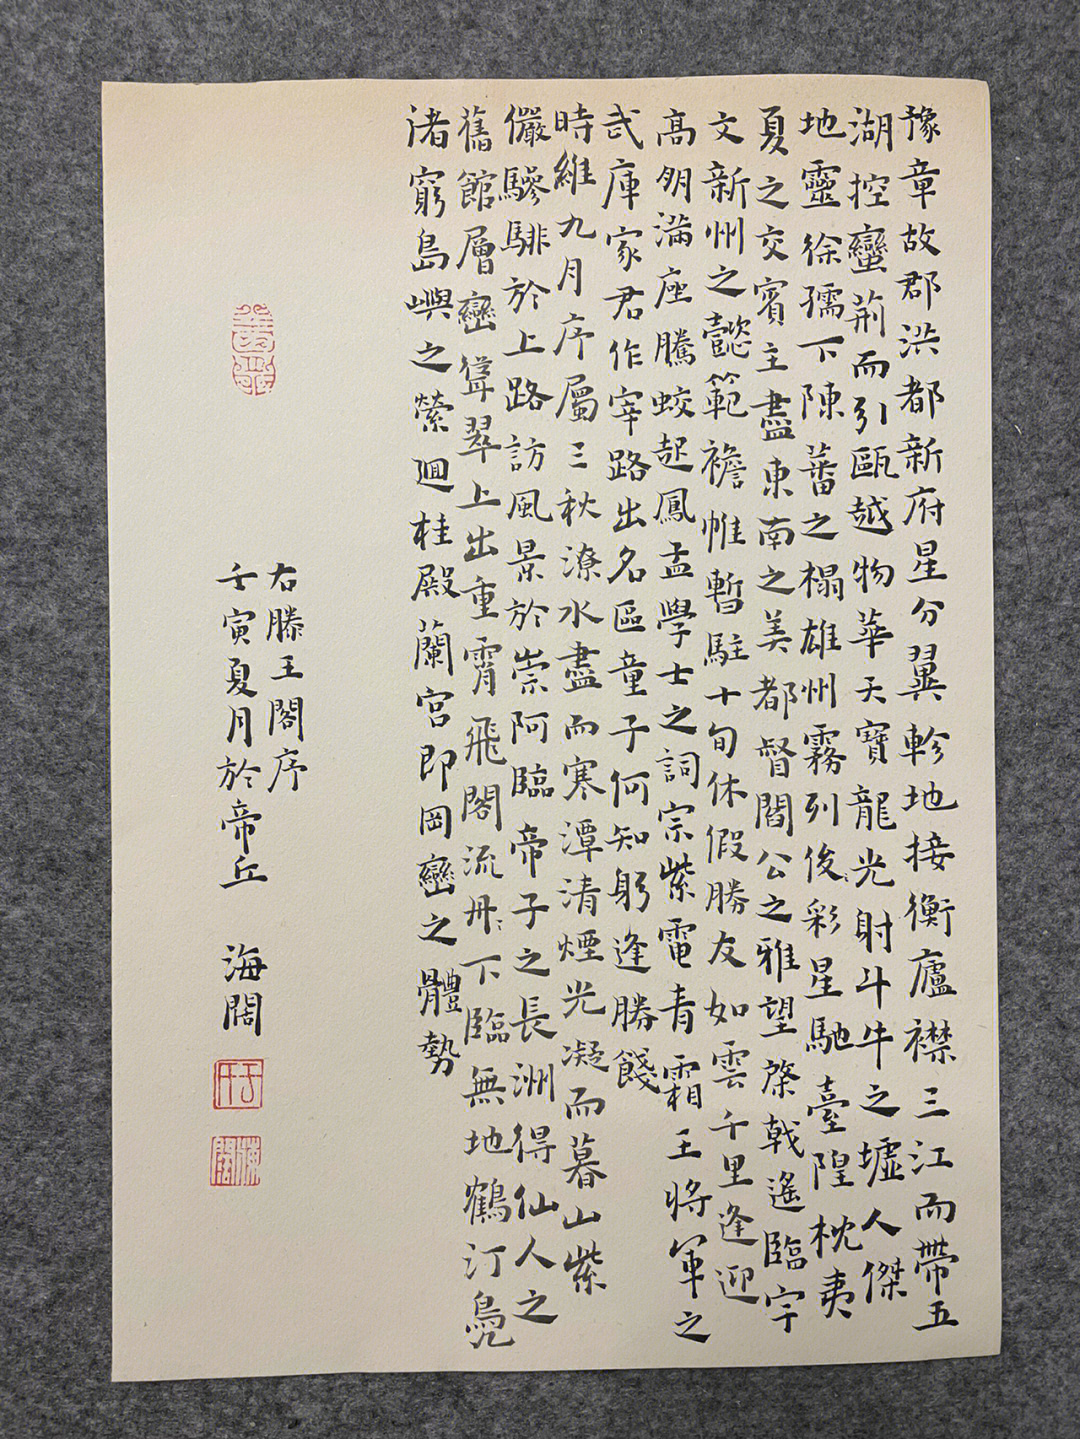 豫章故郡洪都新府星分翼軫地接衡廬襟三江而帶五
湖控蠻荊而引甌越物華天寶龍光射斗牛之墟人傑
地靈徐孺下陳蕃之榻雄州霧列俊彩星馳臺隍枕夷
夏之交賓主盡東南之美都督閻公之雅望棨戟遙臨宇
文新州之懿範襜帷暫駐十旬休假勝友如雲千里逢迎
高朋滿座騰蛟起鳳孟學士之詞宗紫電青霜王將軍之
武庫家君作宰路出名區童子何知躬逢勝餞
時維九月序屬三秋潦水盡而寒潭清煙光凝而暮山紫
儼驂騑於上路訪風景於崇阿臨帝子之長洲得仙人之
舊館層巒聳翠上出重霄飛閣流丹下臨無地鶴汀鳧
渚窮島嶼之縈迴桂殿蘭宮即岡巒之體勢
右滕王閣序
壬寅夏月於帝丘 海闊